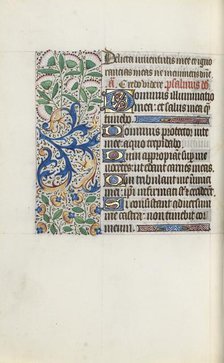 Delicta iuventutis mee et igno
rantias meas ne memineris dne
A. Credo videre. psalmus dd.
Dominus illuminatio
mea et salus mea que
timebo
Dominus protector vite
mee a quo trepidabo
Dum appropiant super me no
centes ut edant carnes meas
Qui tribulant me inimici
mei ipsi infirmati st et ceciderut
Si consistant adversum
me castra non timebit cor
meum